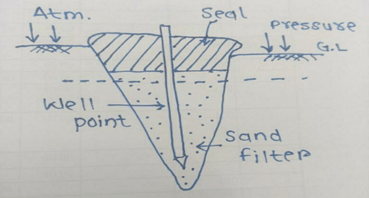 Atm.
Seal
Pressure
G.L
Well
point
Sand
filter